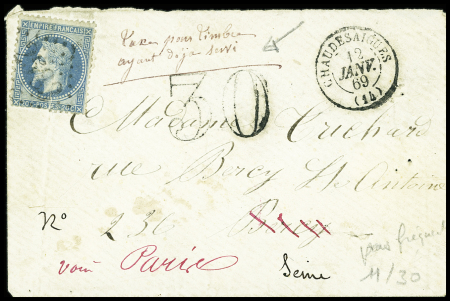 EMPIRE FRANÇAIS
Taxe pour timbre
ayant déjà servi
30
CHAUDESAIGUES
12
JANV.
69
(14)
Madame Truchard
rue Bercy St Antoine
N° 236 Bercy
voir Paris
Seine
pas fréquent
11/30